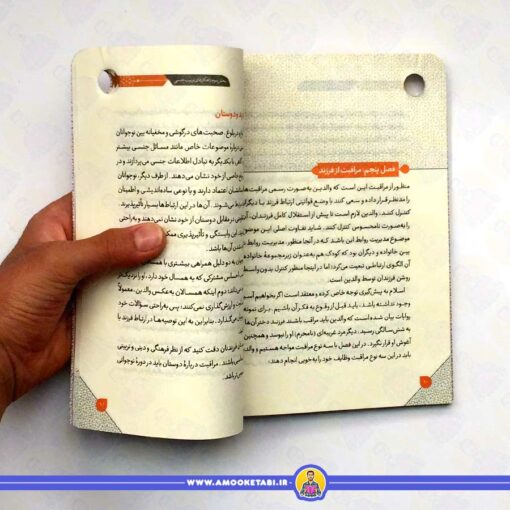 فصل پنجم: مراقبت از فرزند
منظور از مراقبت این است که والدین به‌صورت رسمی مراقبت‌هایی
را مدنظر قرار داده و سعی کنند با وضع قوانینی ارتباط فرزند با دیگران
کنترل کنند. والدین لازم است تا پیش از استقلال کامل فرزندان، آن‌ها
را به‌صورت نامحسوس کنترل کنند. شاید تفاوت اصلی این موضوع
موضوع مدیریت روابط این باشد که در آنجا منظور، مدیریت روابط
بین خانواده و دیگران بود که کودک هم به‌عنوان زیرمجموعهٔ خانواده
آن الگوی ارتباطی تبعیت می‌کرد؛ اما در اینجا منظور کنترل بدون واسطهٔ
روشن فرزندان توسط والدین است.
اسلام به پیش‌گیری توجه خاصی کرده و معتقد است اگر بخواهیم
وجود نداشته باشد، باید قبل از وقوع به فکر آن باشیم. برای نمونه
روایات بیان شده است که والدین باید مراقب باشند فرزند دختر آن‌ها
به شش‌سالگی رسید، دیگر مرد غریبه‌ای (نامحرم) او را نبوسد و همچنین
آغوش او قرار نگیرد. در این فصل با سه نوع مراقبت مواجه هستیم و
باید در این سه نوع مراقبت وظایف خود را به خوبی انجام دهند.
دوستان
بلوغ، صحبت‌های درگوشی و مخفیانه بین نوجوانان
دربارهٔ موضوعات خاص مانند مسائل جنسی بیشتر
با یکدیگر به تبادل اطلاعات جنسی می‌پردازند و در
خاصی از خود نشان می‌دهند. از طرف دیگر، نوجوانان
اعتماد دارند و با نوعی ساده‌اندیشی و اطمینان
می‌شوند. آن‌ها در این ارتباط‌ها بسیار تأثیرپذیرند
در مقابل دوستان از خود نشان نمی‌دهند و به راحتی
این وابستگی و تأثیرپذیری
آن‌ها باشد.
به دو دلیل همراهی بیشتری با همسالان
مشترکی که به همسال خود دارد، او را نزدیک‌تر
دوم اینکه همسالان به عکس والدین، معمولاً
ارزش‌گذاری نمی‌کنند؛ پس به‌راحتی سؤالات خود
می‌گذارد. بنابراین به این توصیه‌ها در ارتباط فرزند با
فرزندان دقت کنید که از نظر فرهنگی و دینی و تربیتی
باشند. مراقبت دربارهٔ دوستان باید در دورهٔ نوجوانی
باشد.
WWW.AMOOKETABI.IR